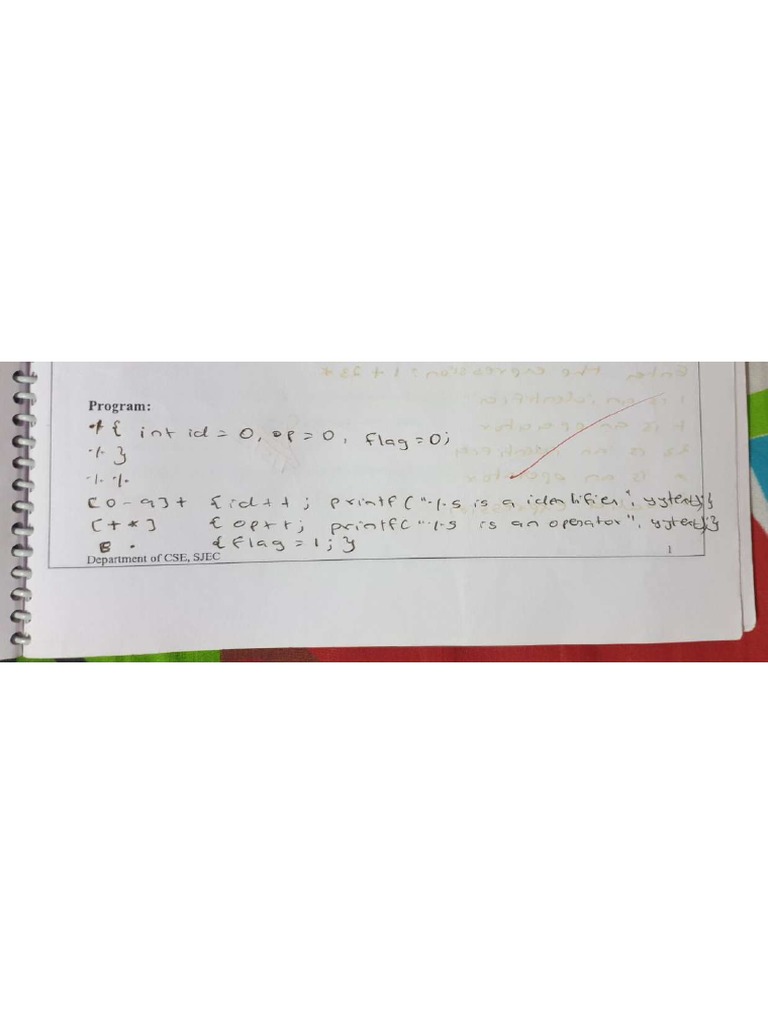 Program:
%{ int id = 0, op = 0, flag = 0;
%}
%%
[0-9]+ {id++; printf("%s is a identifier", yytext);}
[+*] {op++; printf("%s is an operator", yytext);}
. {flag = 1;}
Department of CSE, SJEC 1